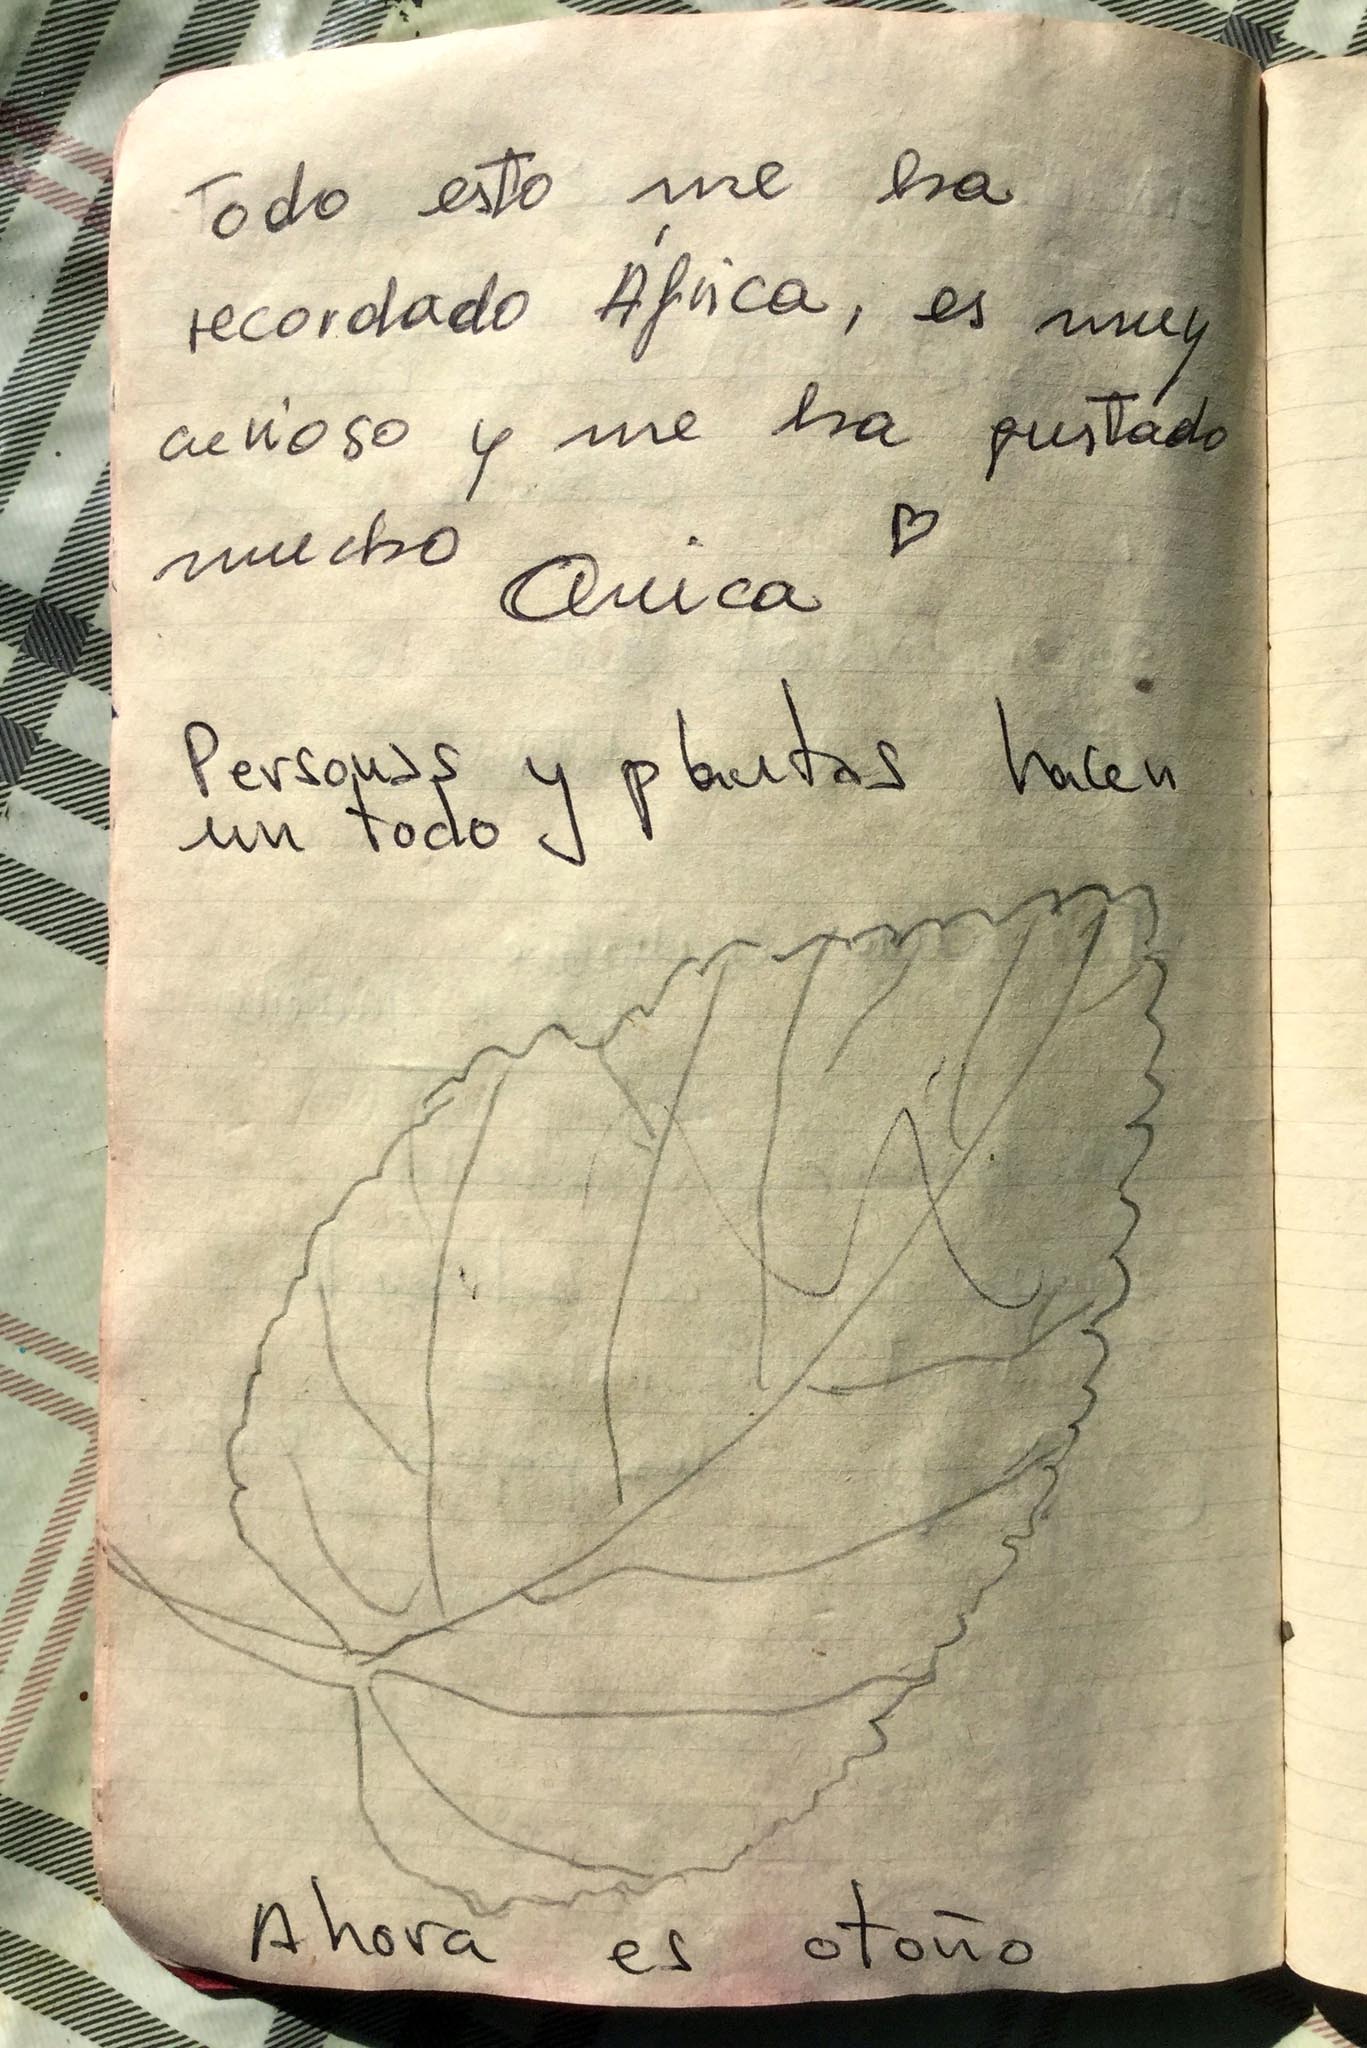 Todo esto me ha
recordado África, es muy
curioso y me ha gustado
mucho
Quica
Personas y plantas hacen
un todo
Ahora es otoño